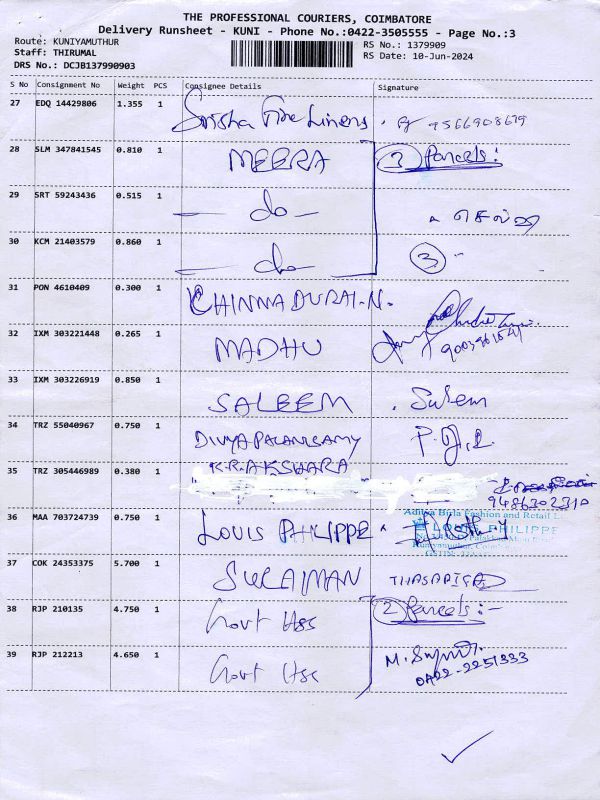 THE PROFESSIONAL COURIERS, COIMBATORE
Delivery Runsheet - KUNI - Phone No.:0422-3505555 - Page No.:3
Route: KUNIYAMUTHUR
Staff: THIRUMAL
DRS No.: DCJB137990903
RS No.: 1379909
RS Date: 10-Jun-2024
S No Consignment No Weight PCS Consignee Details Signature
27 EDQ 14429806 1.355 1 Srisha Fine Linens 9566908679
28 SLM 347841545 0.810 1 MEERA 3 Parcels:
29 SRT 59243436 0.515 1 - do -
30 KCM 21403579 0.860 1 - do - 3 -
31 PON 4610409 0.300 1 CHINNADURAI-N.
32 IXM 303221448 0.265 1 MADHU
33 IXM 303226919 0.850 1 SALEEM Salem
34 TRZ 55040967 0.750 1 DIVYA PALANISAMY
35 TRZ 305446989 0.380 1 K.R.AKSWARA
9486302310
36 MAA 703724739 0.750 1 LOUIS PHILIPPE
Aditya Birla Fashion and Retail L
LOUIS PHILIPPE
37 COK 24353375 5.700 1 SULAIMAN
38 RJP 210135 4.750 1 Govt Hss 2 Parcels:-
39 RJP 212213 4.650 1 Govt Hss
0422-2251333